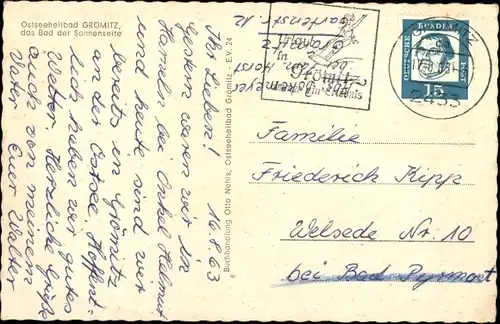 Ostseeheilbad GRÖMITZ,
das Bad der Sonnenseite
16.8.63
Ihr Lieben!
Gestern waren wir in
Hameln bei Onkel Helmut
und heute sind wir
bereits in Grömitz
an der Ostsee. Hoffent-
lich haben wir gutes
Wetter. Herzliche Grüße
auch von meinen
Euer Walter
Buchhandlung Otto Nehls, Ostseeheilbad Grömitz · E.V. 24
Horst
Gartenstr. 12
Urlaub
in
Grömitz
ein Erlebnis
DEUTSCHE
BUNDESPOST
15
2433
Familie
Friederich Kipp
Welsede Nr. 10
bei Bad Pyrmont